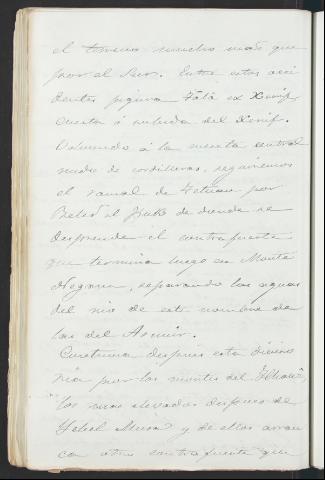 el terreno mucho mas que
por el Sur. Entre estos acci
dentes figura Tala el Xerif,
cuesta ó subida del Xerif.
Volviendo á la meseta central
nudo de cordilleras, seguiremos
el ramal de Tetuan por
Beled el de donde se
desprende el contrafuerte
que termina luego en Monte
Negron, separando las aguas
del rio de este nombre de
las del Asmir.
Continua despues esta diviso
ria por los montes del
los mas elevados despues de
Yebel Musa y de ellos arran
ca otro contrafuerte que